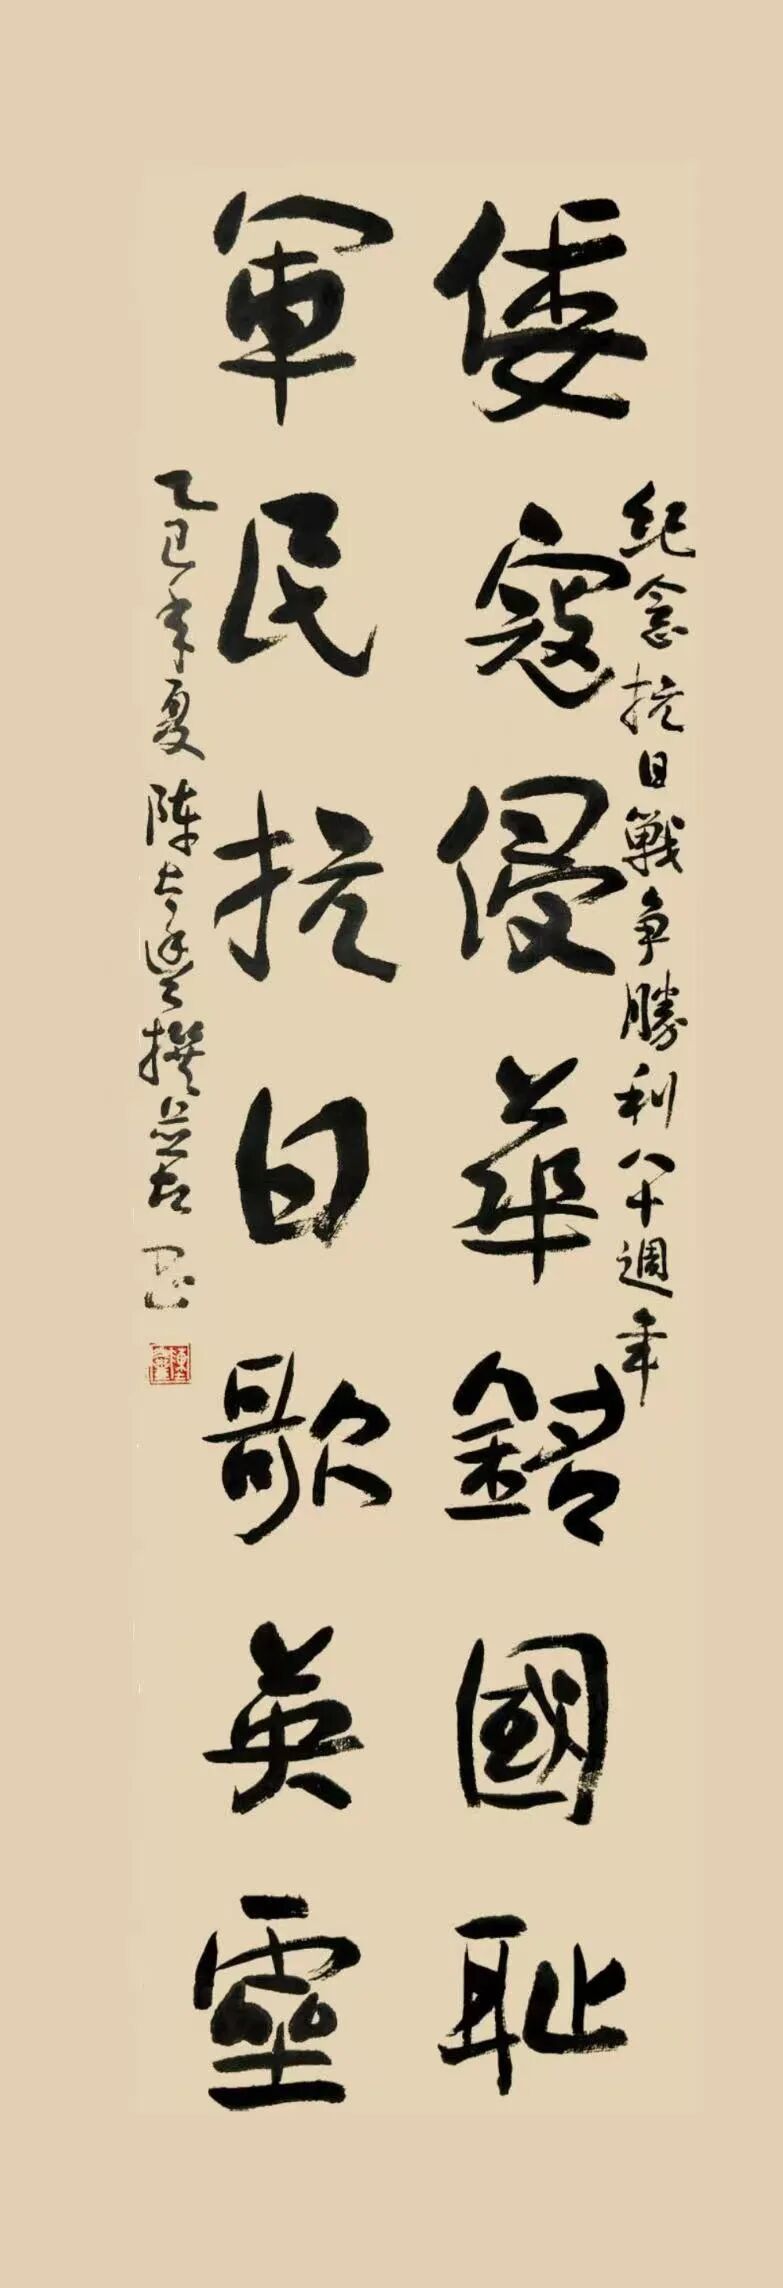 紀念抗日戰争勝利八十週年
倭寇侵華銘國耻
軍民抗日歌英靈
乙巳年夏 陈 撰并书